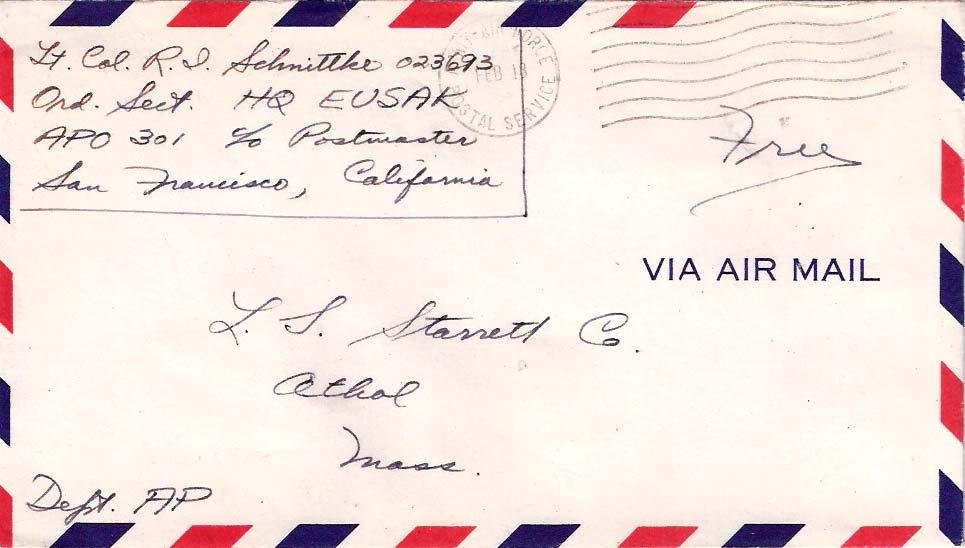 Lt. Col. R. I. Schnittke 023693
Ord. Sect. HQ EUSAK
APO 301 c/o Postmaster
San Francisco, California
AIR FORCE
POSTAL SERVICE
FEB 18
Free
VIA AIR MAIL
L. S. Starrett Co.
Athol
Mass.
Dept. AP